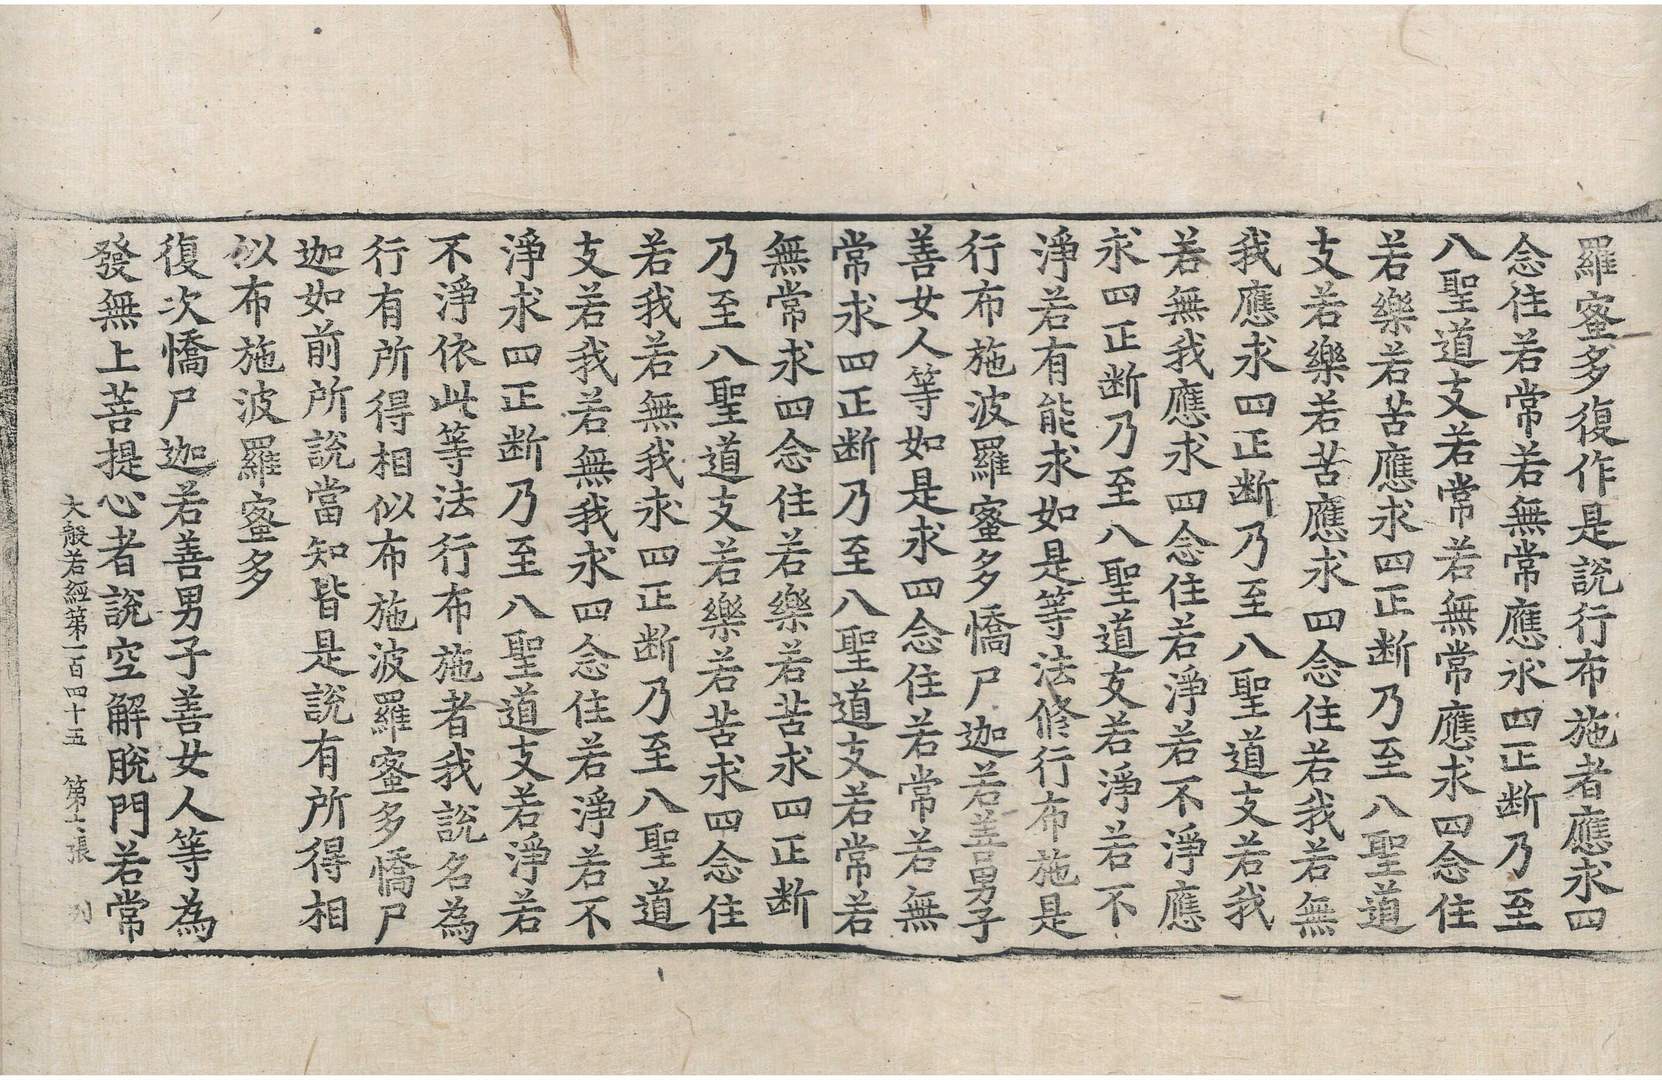 羅蜜多復作是說行布施者應求四
念住若常若無常應求四正断乃至
八聖道支若常若無常應求四念住
若樂若苦應求四正断乃至八聖道
支若樂若苦應求四念住若我若無
我應求四正断乃至八聖道支若我
若無我應求四念住若淨若不淨應
求四正断乃至八聖道支若淨若不
淨若有能求如是等法修行布施是
行布施波羅蜜多憍尸迦若善男子
善女人等如是求四念住若常若無
常求四正断乃至八聖道支若常若
無常求四念住若樂若苦求四正断
乃至八聖道支若樂若苦求四念住
若我若無我求四正断乃至八聖道
支若我若無我求四念住若淨若不
淨求四正断乃至八聖道支若淨若
不淨依此等法行布施者我說名為
行有所得相似布施波羅蜜多憍尸
迦如前所說當知皆是說有所得相
似布施波羅蜜多
復次憍尸迦若善男子善女人等為
發無上菩提心者說空解脫門若常
大般若經第一百四十五 第十六張